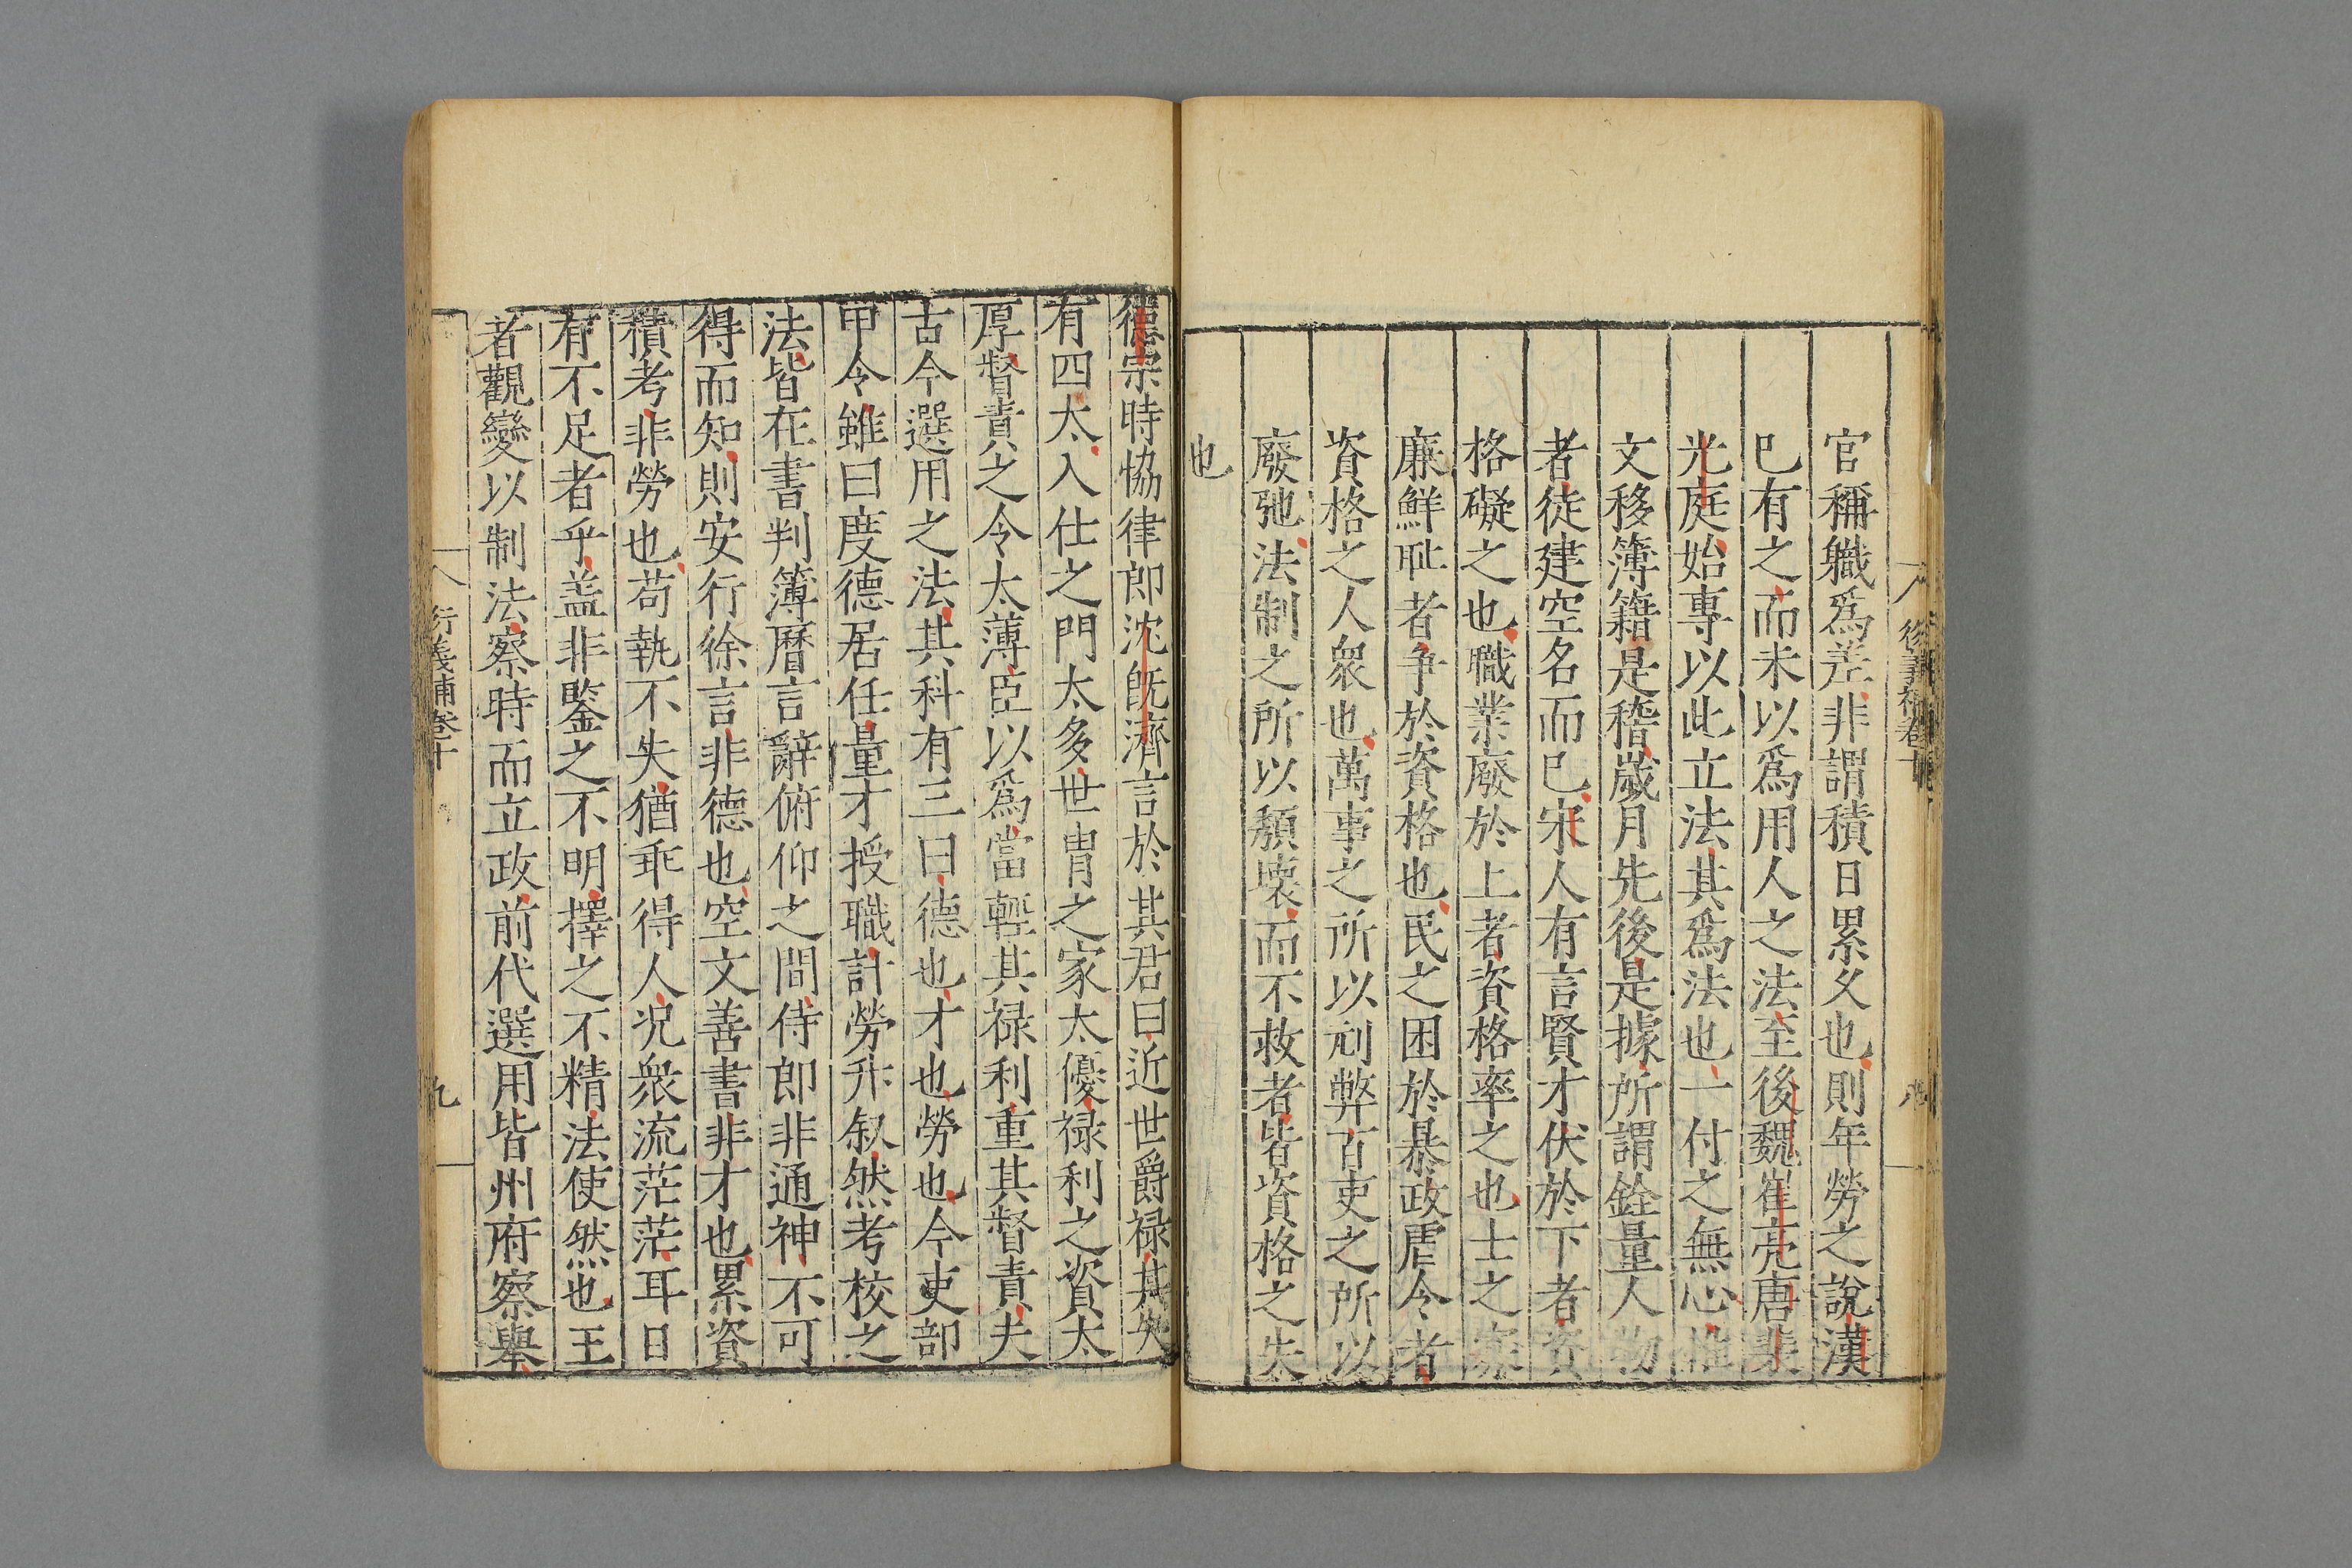 官稱職為差非謂積日累久也則年勞之說漢
已有之而未以為用人之法至後魏崔亮唐裴
光庭始專以此立法其為法也一付之無心惟
文移簿籍是稽歲月先後是據所謂銓量人物
者徒建空名而已宋人有言賢才伏於下者資
格礙之也職業廢於上者資格率之也士之寡
廉鮮耻者争於資格也民之困於暴政虐令者
資格之人衆也萬事之所以刓弊百吏之所以
廢弛法制之所以頹壞而不救者皆資格之失
也
德宗時協律郎沈旣濟言於其君曰近世爵禄其失
有四太入仕之門太多世胄之家太優禄利之資太
厚督責之令太薄臣以為當輕其禄利重其督責夫
古今選用之法其科有三曰德也才也勞也今吏部
甲令雖曰度德居任量才授職計勞升叙然考校之
法皆在書判簿曆言辭俯仰之間侍郎非通神不可
得而知則安行徐言非德也空文善書非才也累資
積考非勞也苟執不失猶乖得人况衆流茫茫耳目
有不足者乎盖非鑒之不明擇之不精法使然也王
者觀變以制法察時而立政前代選用皆州府察舉
衍義補卷十
九